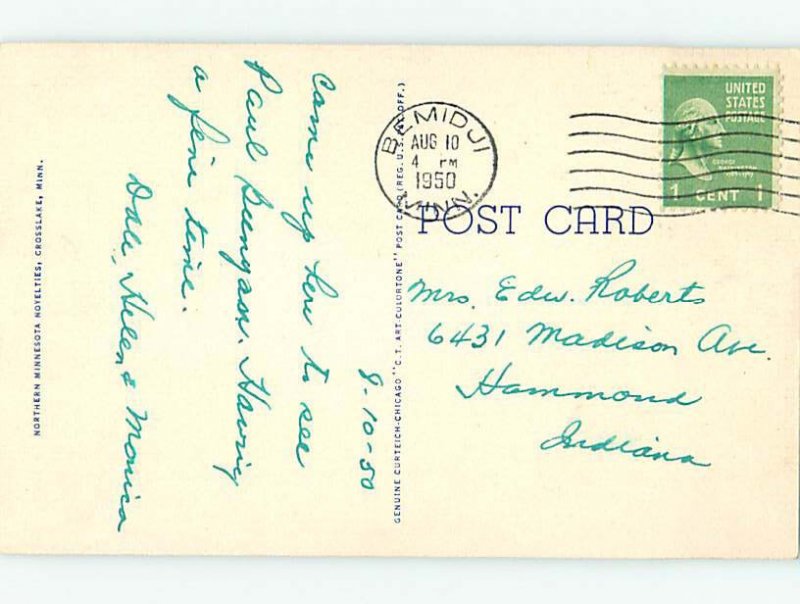 NORTHERN MINNESOTA NOVELTIES, CROSSLAKE, MINN.
8-10-50
Came up here to see
Paul Bungason. Having
a fine time.
Dale, Helen & Monica
GENUINE CURTEICH-CHICAGO "C.T. ART-COLORTONE" POST CARD (REG. U.S. PAT. OFF.)
BEMIDJI
AUG 10
4 PM
1950
MINN.
UNITED
STATES
POSTAGE
GEORGE
WASHINGTON
1 CENT 1
POST CARD
Mrs. Edw. Roberts
6431 Madison Ave.
Hammond
Indiana